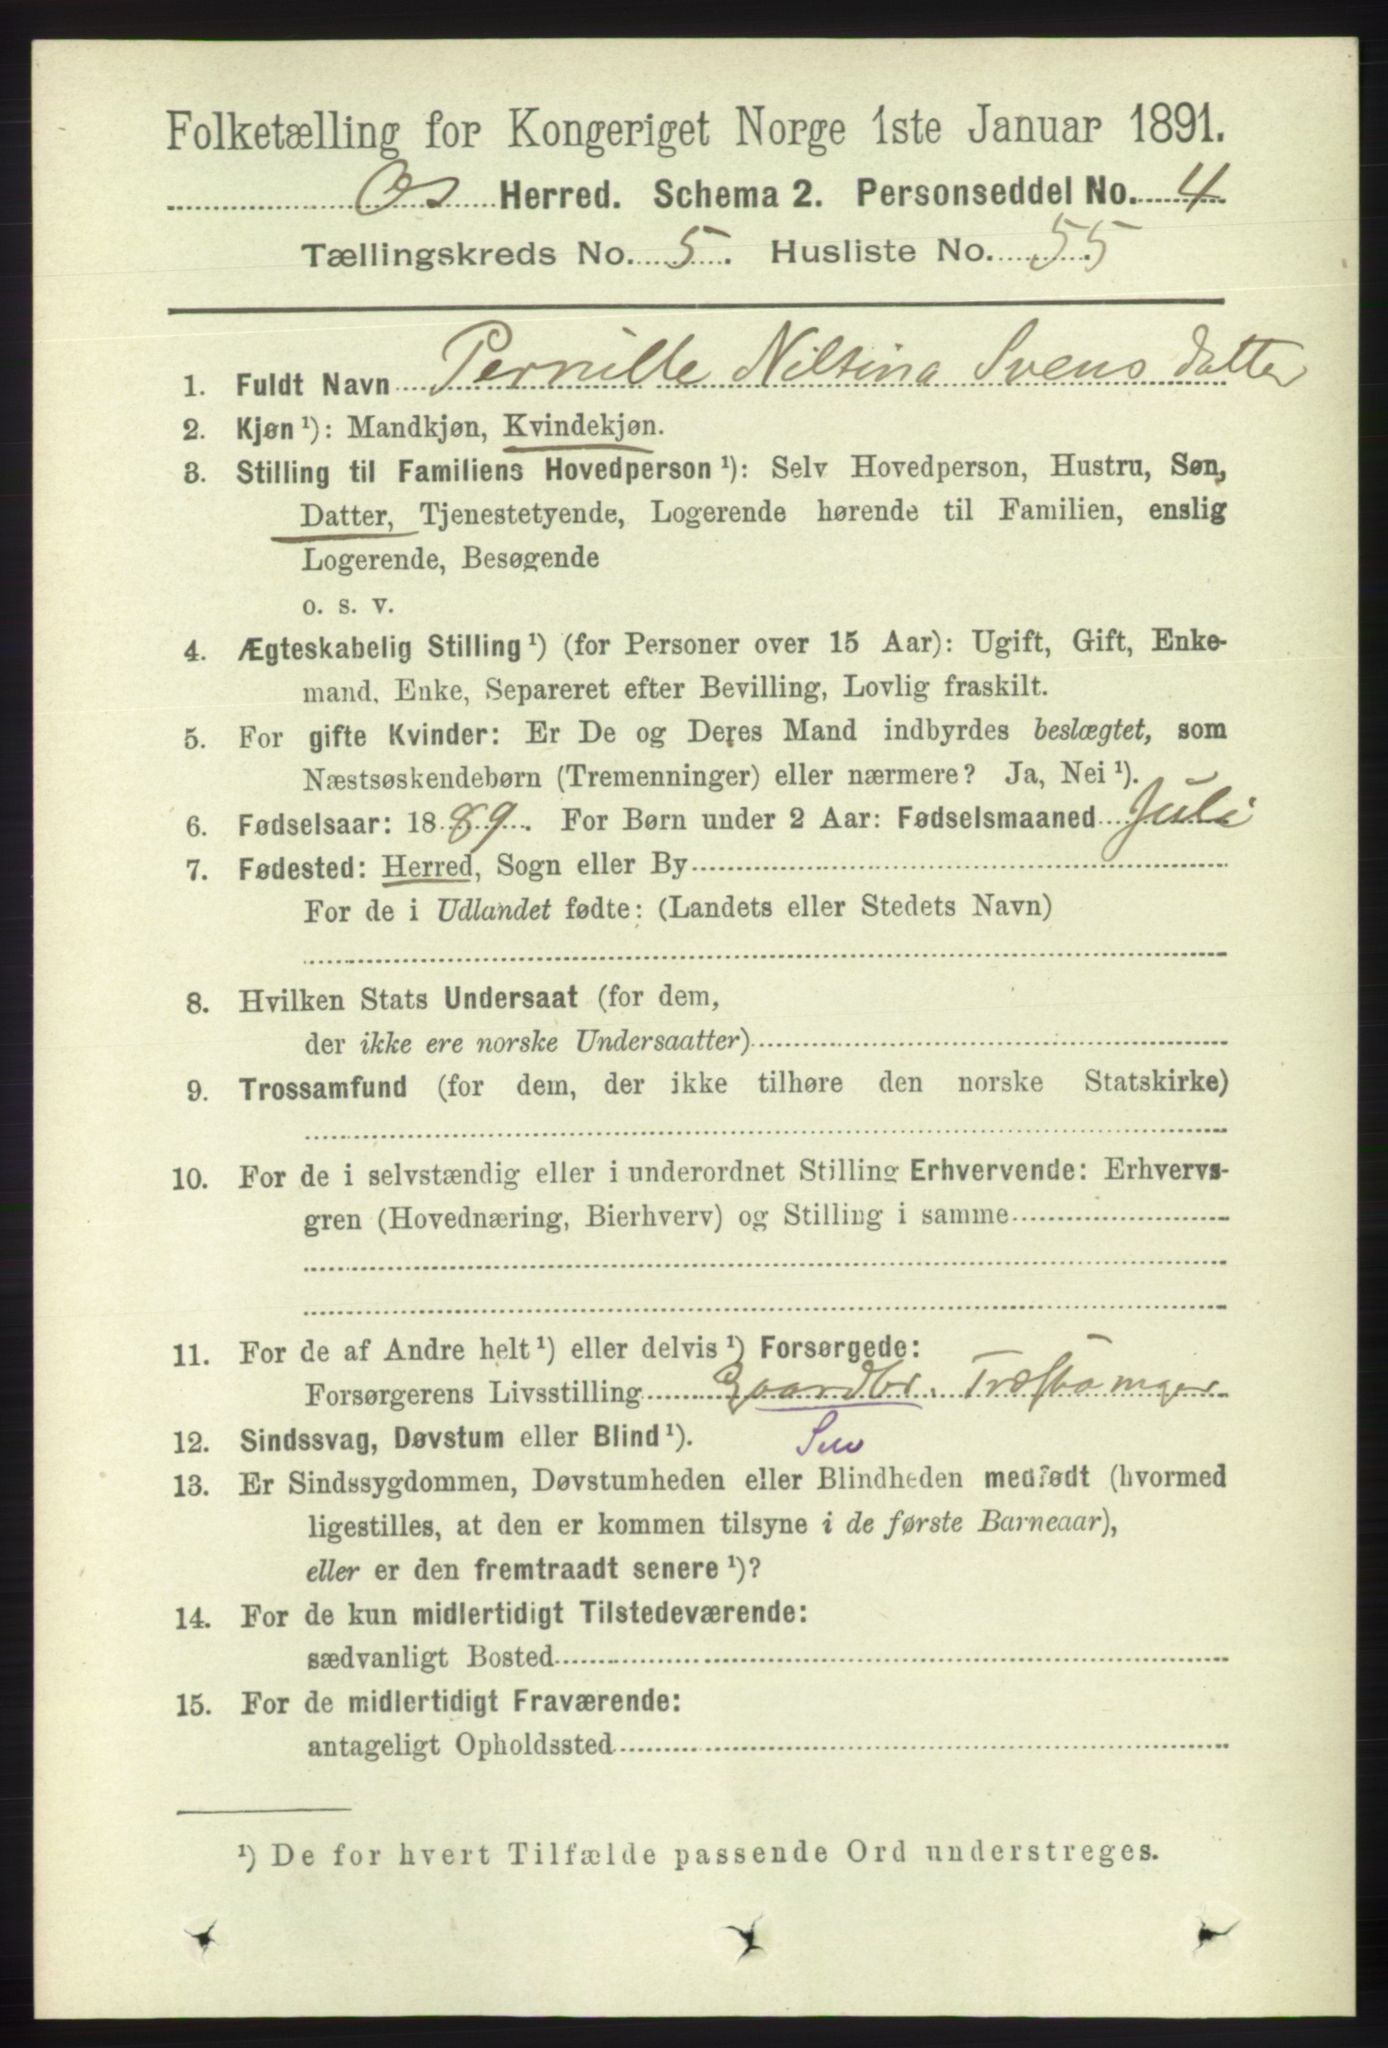 Folketælling for Kongeriget Norge 1ste Januar 1891.
Os Herred. Schema 2. Personseddel No. 4
Tællingskreds No. 5. Husliste No. 55
1. Fuldt Navn Pernille Niltina Svensdatter
2. Kjøn ¹): Mandkjøn, Kvindekjøn.
3. Stilling til Familiens Hovedperson ¹): Selv Hovedperson, Hustru, Søn,
Datter, Tjenestetyende, Logerende hørende til Familien, enslig
Logerende, Besøgende
o. s. v.
4. Ægteskabelig Stilling ¹) (for Personer over 15 Aar): Ugift, Gift, Enke-
mand, Enke, Separeret efter Bevilling, Lovlig fraskilt.
5. For gifte Kvinder: Er De og Deres Mand indbyrdes beslægtet, som
Næstsøskendebørn (Tremenninger) eller nærmere? Ja, Nei ¹).
6. Fødselsaar: 1889. For Børn under 2 Aar: Fødselsmaaned Juli
7. Fødested: Herred, Sogn eller By
For de i Udlandet fødte: (Landets eller Stedets Navn)
8. Hvilken Stats Undersaat (for dem,
der ikke ere norske Undersaatter)
9. Trossamfund (for dem, der ikke tilhøre den norske Statskirke)
10. For de i selvstændig eller i underordnet Stilling Erhvervende: Erhvervs-
gren (Hovednæring, Bierhverv) og Stilling i samme
11. For de af Andre helt ¹) eller delvis ¹) Forsørgede:
Forsørgerens Livsstilling Gaardbr.
12. Sindssvag, Døvstum eller Blind ¹).
13. Er Sindssygdommen, Døvstumheden eller Blindheden medfødt (hvormed
ligestilles, at den er kommen tilsyne i de første Barneaar),
eller er den fremtraadt senere ¹)?
14. For de kun midlertidigt Tilstedeværende:
sædvanligt Bosted
15. For de midlertidigt Fraværende:
antageligt Opholdssted
¹) De for hvert Tilfælde passende Ord understreges.